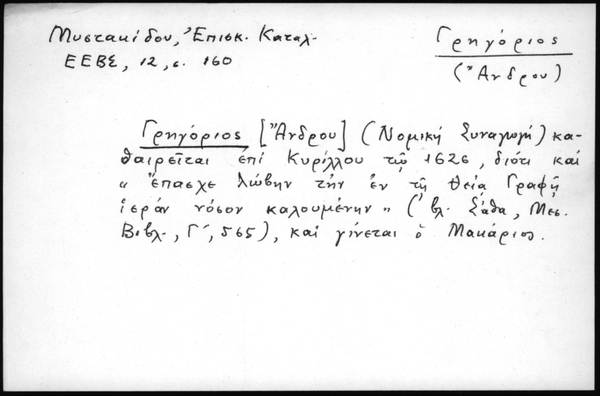 Μυστακίδου, Ἐπισκ. Καταλ.
ΕΕΒΣ, 12, σ. 160
Γρηγόριος
(Ἄνδρου)
Γρηγόριος [Ἄνδρου] (Νομικὴ Συναγωγή) κα-
θαιρεῖται ἐπὶ Κυρίλλου τῷ 1626, διότι καὶ
« ἔπασχε λώβην τὴν ἐν τῇ θείᾳ Γραφῇ
ἱερὰν νόσον καλουμένην » (βλ. Σάθα, Μεσ.
Βιβλ., Γ´, 565), καὶ γίνεται ὁ Μακάριος.